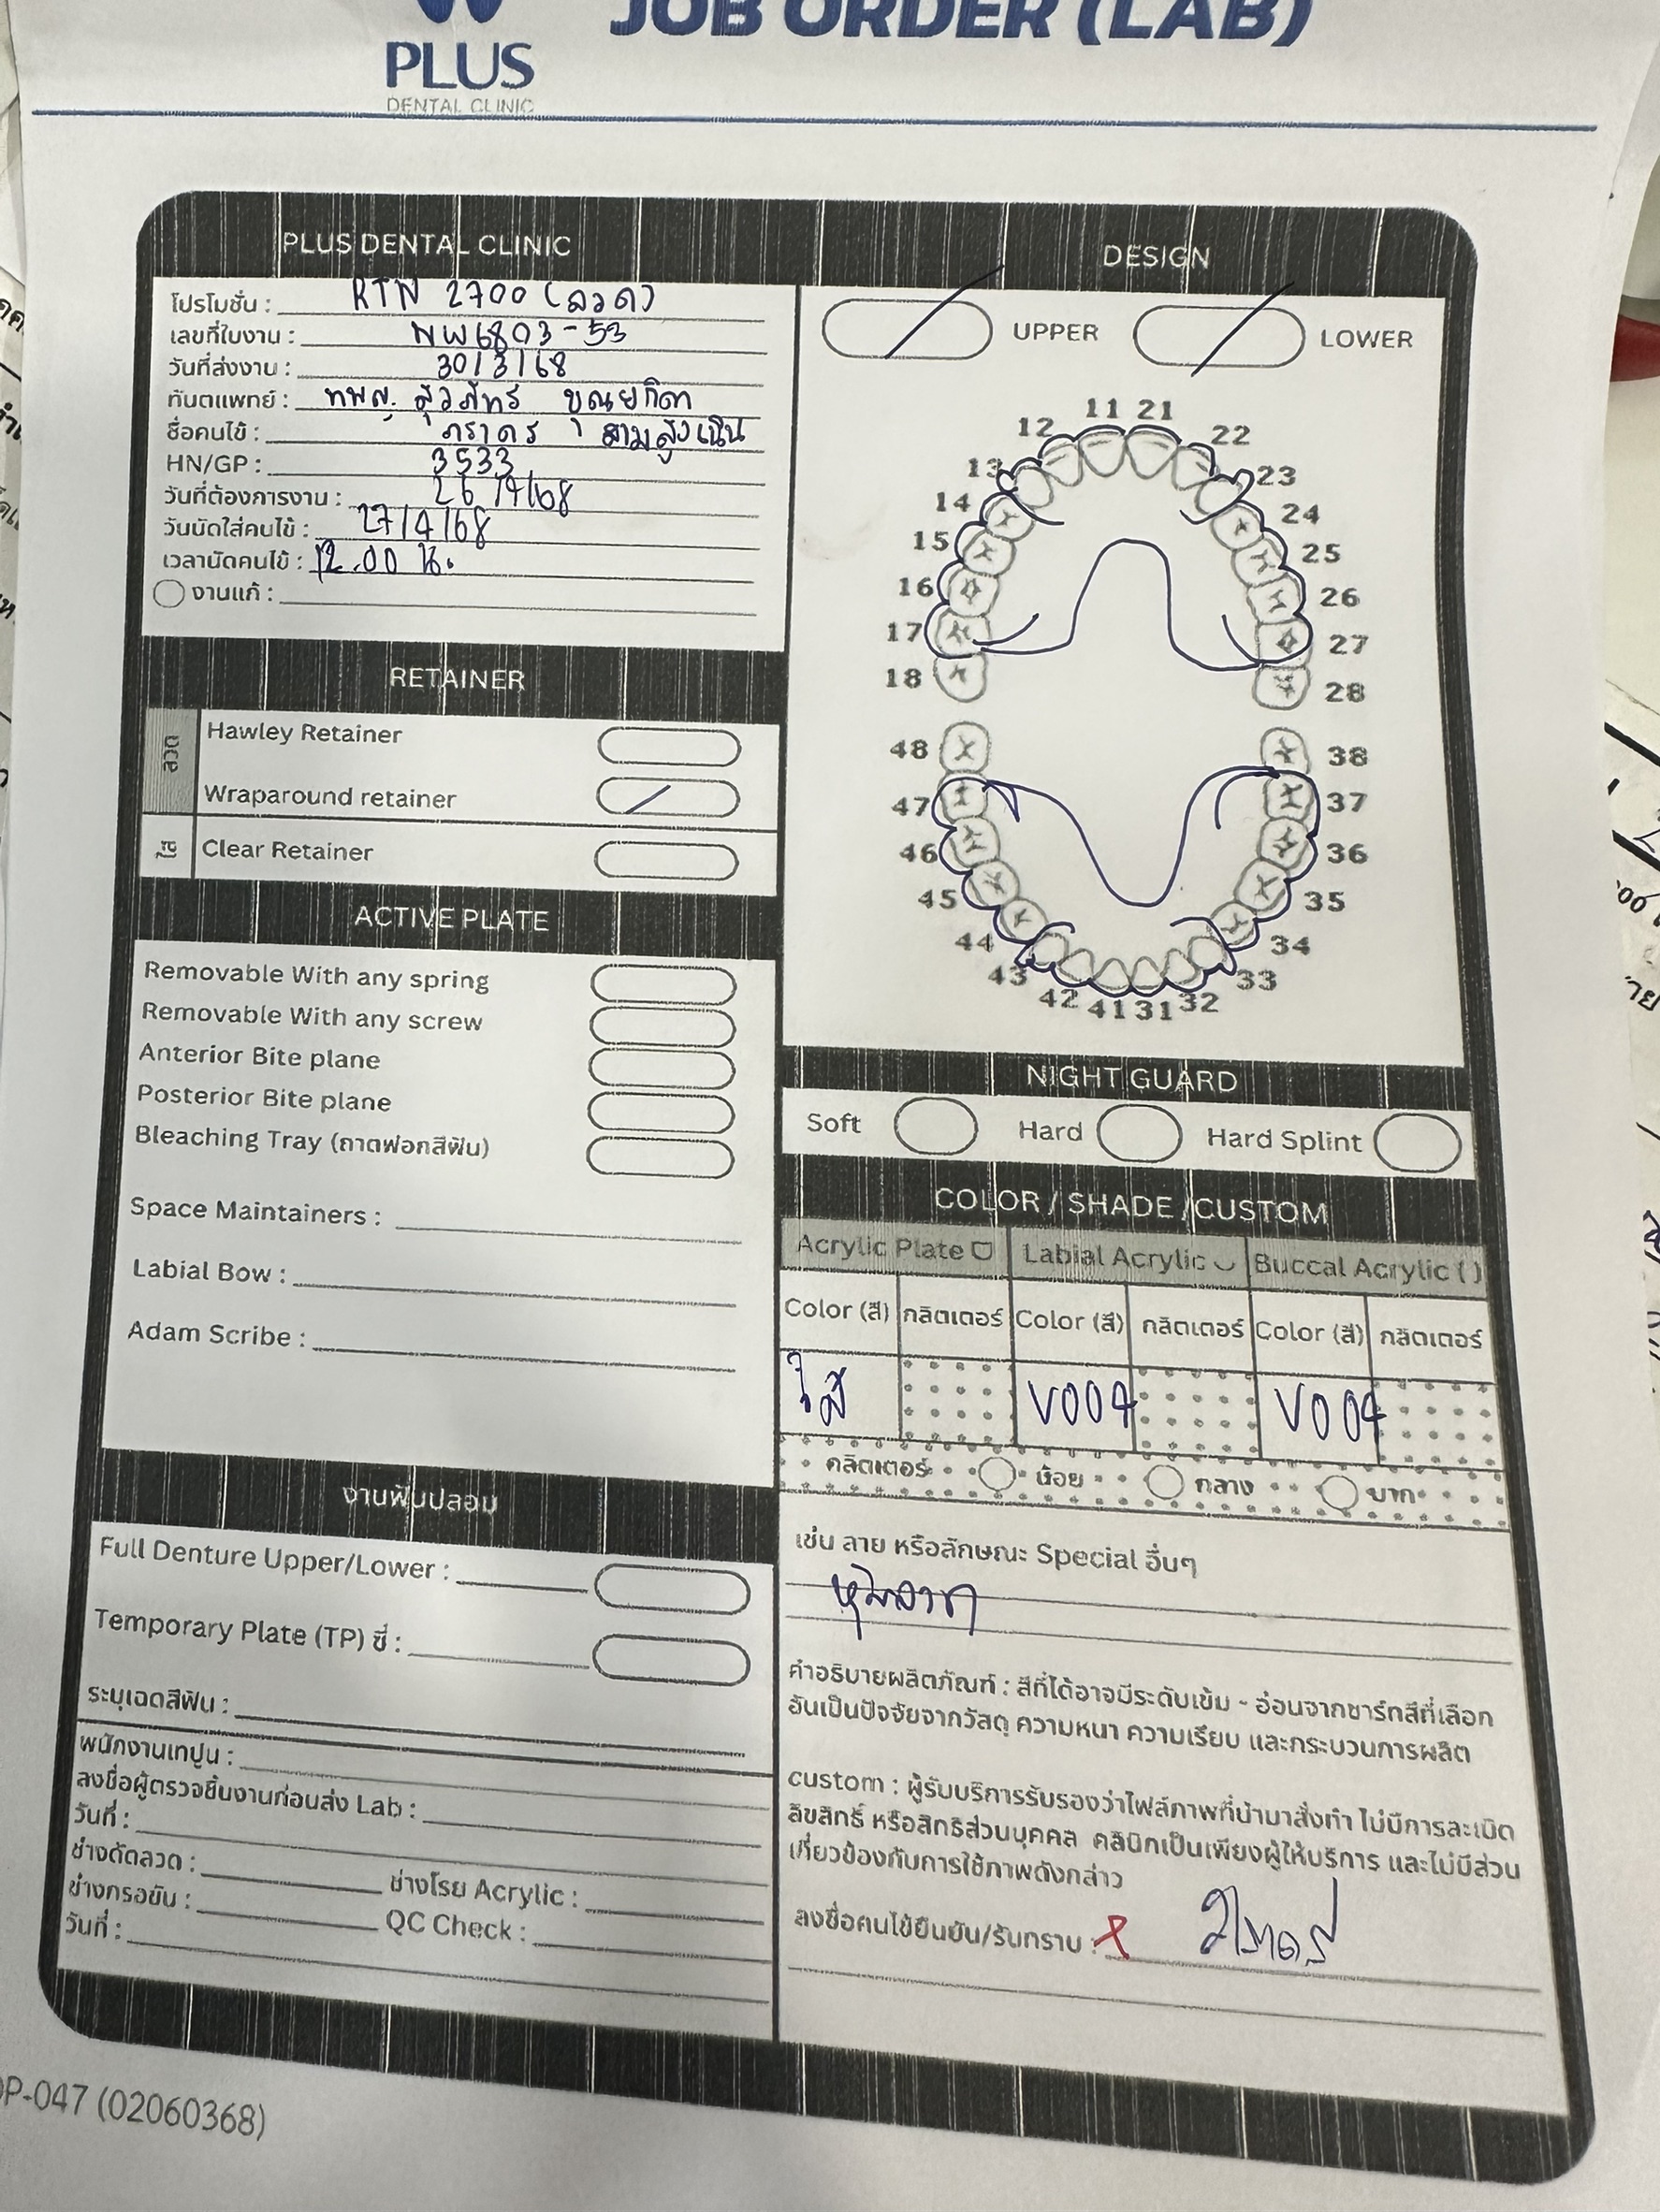 JOB ORDER (LAB)
PLUS
DENTAL CLINIC
PLUS DENTAL CLINIC
โปรโมชั่น : RTN 2700 (ลวด)
เลขที่ใบงาน : NW6803-53
วันที่ส่งงาน : 30/3/68
ทันตแพทย์ : ทพญ. สุวภัทร บุณยกิดา
ชื่อคนไข้ : ภราดร สามสูงเนิน
HN/GP : 3533
วันที่ต้องการงาน : 26/4/68
วันนัดใส่คนไข้ : 27/4/68
เวลานัดคนไข้ : 12.00 น.
งานแก้ :
RETAINER
ลวด
Hawley Retainer
Wraparound retainer
ใส
Clear Retainer
ACTIVE PLATE
Removable With any spring
Removable With any screw
Anterior Bite plane
Posterior Bite plane
Bleaching Tray (ถาดฟอกสีฟัน)
Space Maintainers :
Labial Bow :
Adam Scribe :
งานฟันปลอม
Full Denture Upper/Lower :
Temporary Plate (TP) ซี่ :
ระบุเฉดสีฟัน :
พนักงานเทปูน :
ลงชื่อผู้ตรวจชิ้นงานก่อนส่ง Lab :
วันที่ :
ช่างดัดลวด : ช่างโรย Acrylic :
ช่างกรอขัน : QC Check :
วันที่ :
DESIGN
UPPER LOWER
11 21
12 22
13 23
14 24
15 25
16 26
17 27
18 28
48 38
47 37
46 36
45 35
44 34
43 33
42 41 31 32
NIGHT GUARD
Soft Hard Hard Splint
COLOR / SHADE / CUSTOM
Acrylic Plate Labial Acrylic Buccal Acrylic ( )
Color (สี) กลิตเตอร์ Color (สี) กลิตเตอร์ Color (สี) กลิตเตอร์
V004 V004
กลิตเตอร์ น้อย กลาง มาก
เช่น ลาย หรือลักษณะ Special อื่นๆ
คำอธิบายผลิตภัณฑ์ : สีที่ได้อาจมีระดับเข้ม - อ่อนจากชาร์ทสีที่เลือก
อันเป็นปัจจัยจากวัสดุ ความหนา ความเรียบ และกระบวนการผลิต
custom : ผู้รับบริการรับรองว่าไฟล์ภาพที่นำมาสั่งทำ ไม่มีการละเมิด
ลิขสิทธิ์ หรือสิทธิส่วนบุคคล คลินิกเป็นเพียงผู้ให้บริการ และไม่มีส่วน
เกี่ยวข้องกับการใช้ภาพดังกล่าว
ลงชื่อคนไข้ยืนยัน/รับทราบ :
OP-047 (02060368)